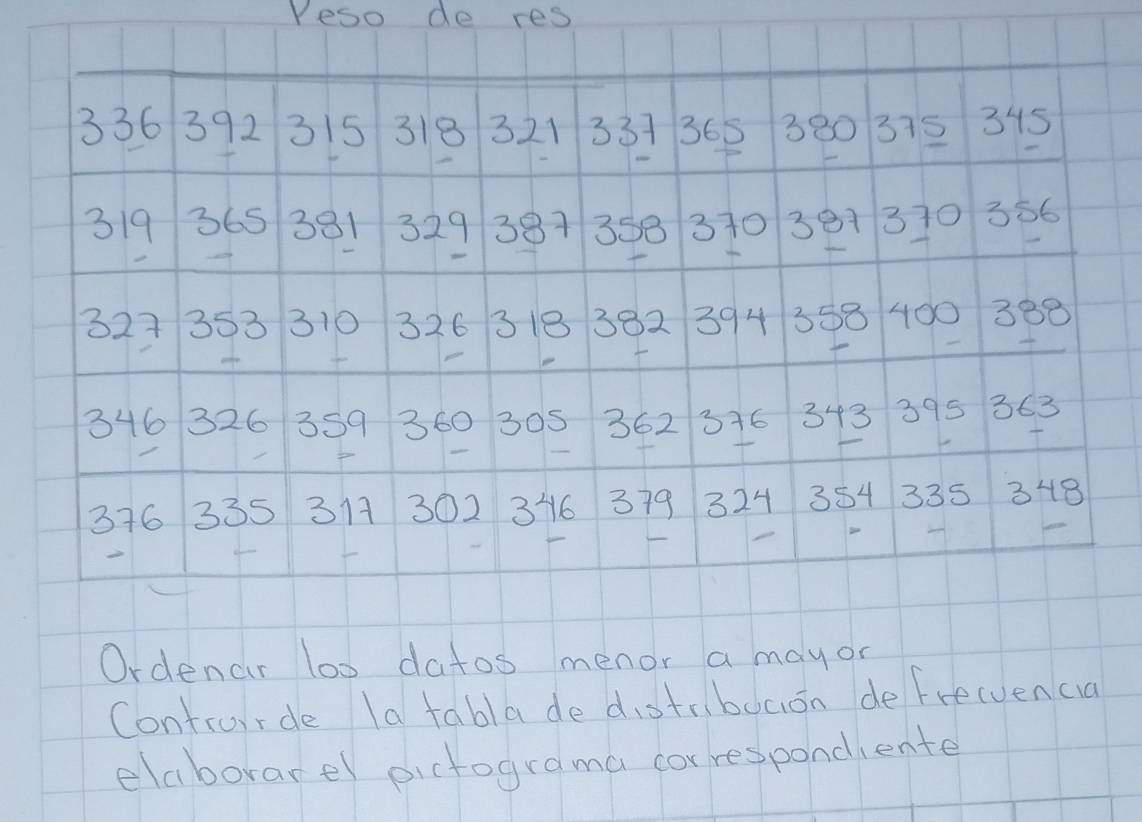 Peso de res
336 392 315 318 321 337 365 380 375 345
319 365 381 329 387 358 370 387 370 356
327 353 310 326 318 382 394 358 400 388
346 326 359 360 305 362 376 343 395 363
376 335 317 302 346 379 324 354 335 348
Ordenar los datos menor a mayor
Contruir de la tabla de distribución de frecuencia
elaborar el pictograma correspondiente